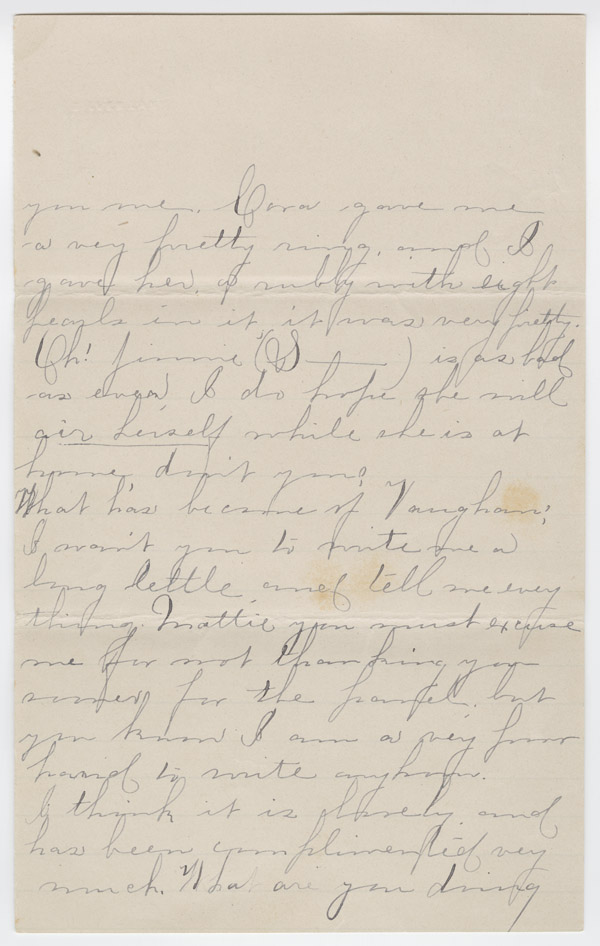 you me. Cora gave me
a very pretty ring, and I
gave her, a rubby with eight
pearls in it it was very pretty.
Oh! Jimmie (S——) is as bad
as ever I do hope she will
air herself while she is at
home, don't you?
What has become of Vaughan;
I want you to write me a
long lettle, and tell me every
thing. Mattie you must excuse
me for not thanking you
sooner for the panel, but
you know I am a very poor
hand to write anyhow.
I think it is lovely and
has been complimented very
much. What are you doing